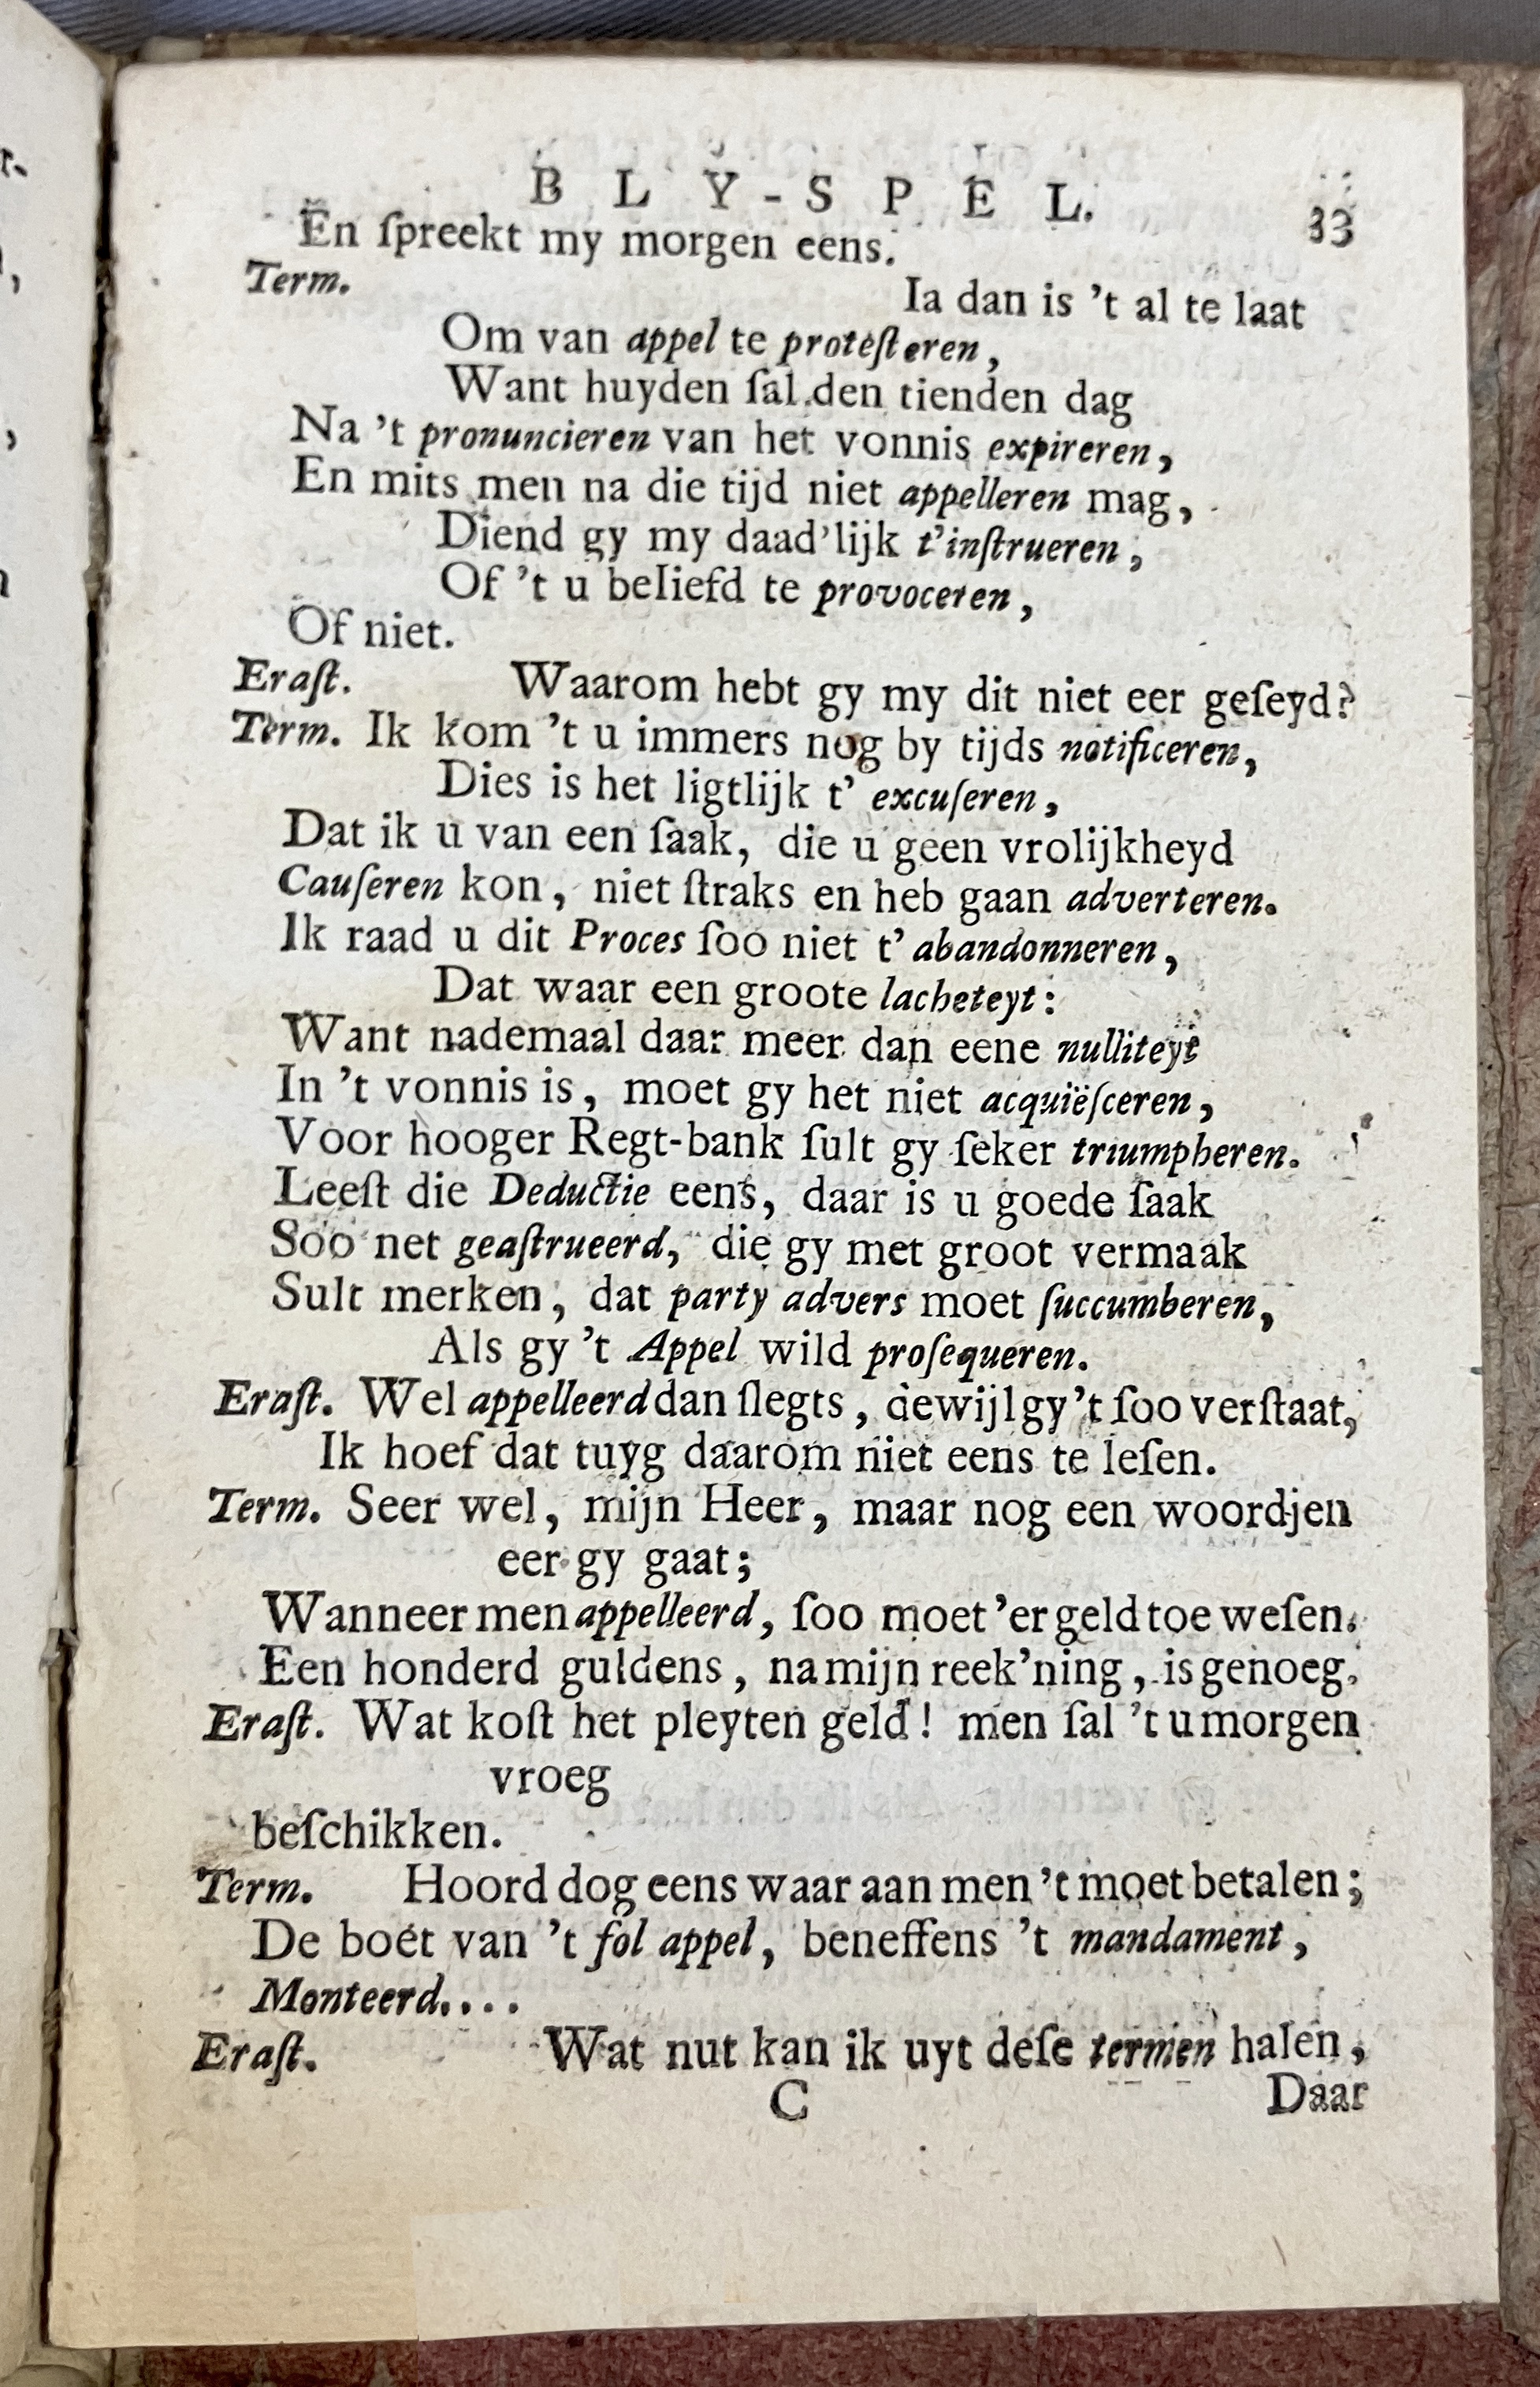 BLY-SPEL. 33
En ſpreekt my morgen eens.
Term. Ia dan is 't al te laat
Om van appel te proteſteren,
Want huyden ſal den tienden dag
Na 't pronuncieren van het vonnis expireren,
En mits men na die tijd niet appelleren mag,
Diend gy my daad'lijk t'inſtrueren,
Of 't u beliefd te provoceren,
Of niet.
Eraſt. Waarom hebt gy my dit niet eer geſeyd?
Term. Ik kom 't u immers nog by tijds notificeren,
Dies is het ligtlijk t' excuſeren,
Dat ik u van een ſaak, die u geen vrolijkheyd
Cauſeren kon, niet ſtraks en heb gaan adverteren.
Ik raad u dit Proces ſoo niet t' abandonneren,
Dat waar een groote lacheteyt:
Want nademaal daar meer dan eene nulliteyt
In 't vonnis is, moet gy het niet acquiëſceren,
Voor hooger Regt-bank ſult gy ſeker triumpheren.
Leeſt die Deductie eens, daar is u goede ſaak
Soo net geaſtrueerd, die gy met groot vermaak
Sult merken, dat party advers moet ſuccumberen,
Als gy 't Appel wild proſequeren.
Eraſt. Wel appelleerd dan ſlegts, dewijl gy 't ſoo verſtaat,
Ik hoef dat tuyg daarom niet eens te leſen.
Term. Seer wel, mijn Heer, maar nog een woordjen
eer gy gaat;
Wanneer men appelleerd, ſoo moet 'er geld toe weſen.
Een honderd guldens, na mijn reek'ning, is genoeg.
Eraſt. Wat koſt het pleyten geld! men ſal 't u morgen
vroeg
beſchikken.
Term. Hoord dog eens waar aan men 't moet betalen;
De boet van 't fol appel, beneffens 't mandament,
Monteerd....
Eraſt. Wat nut kan ik uyt deſe termen halen,
C Daar